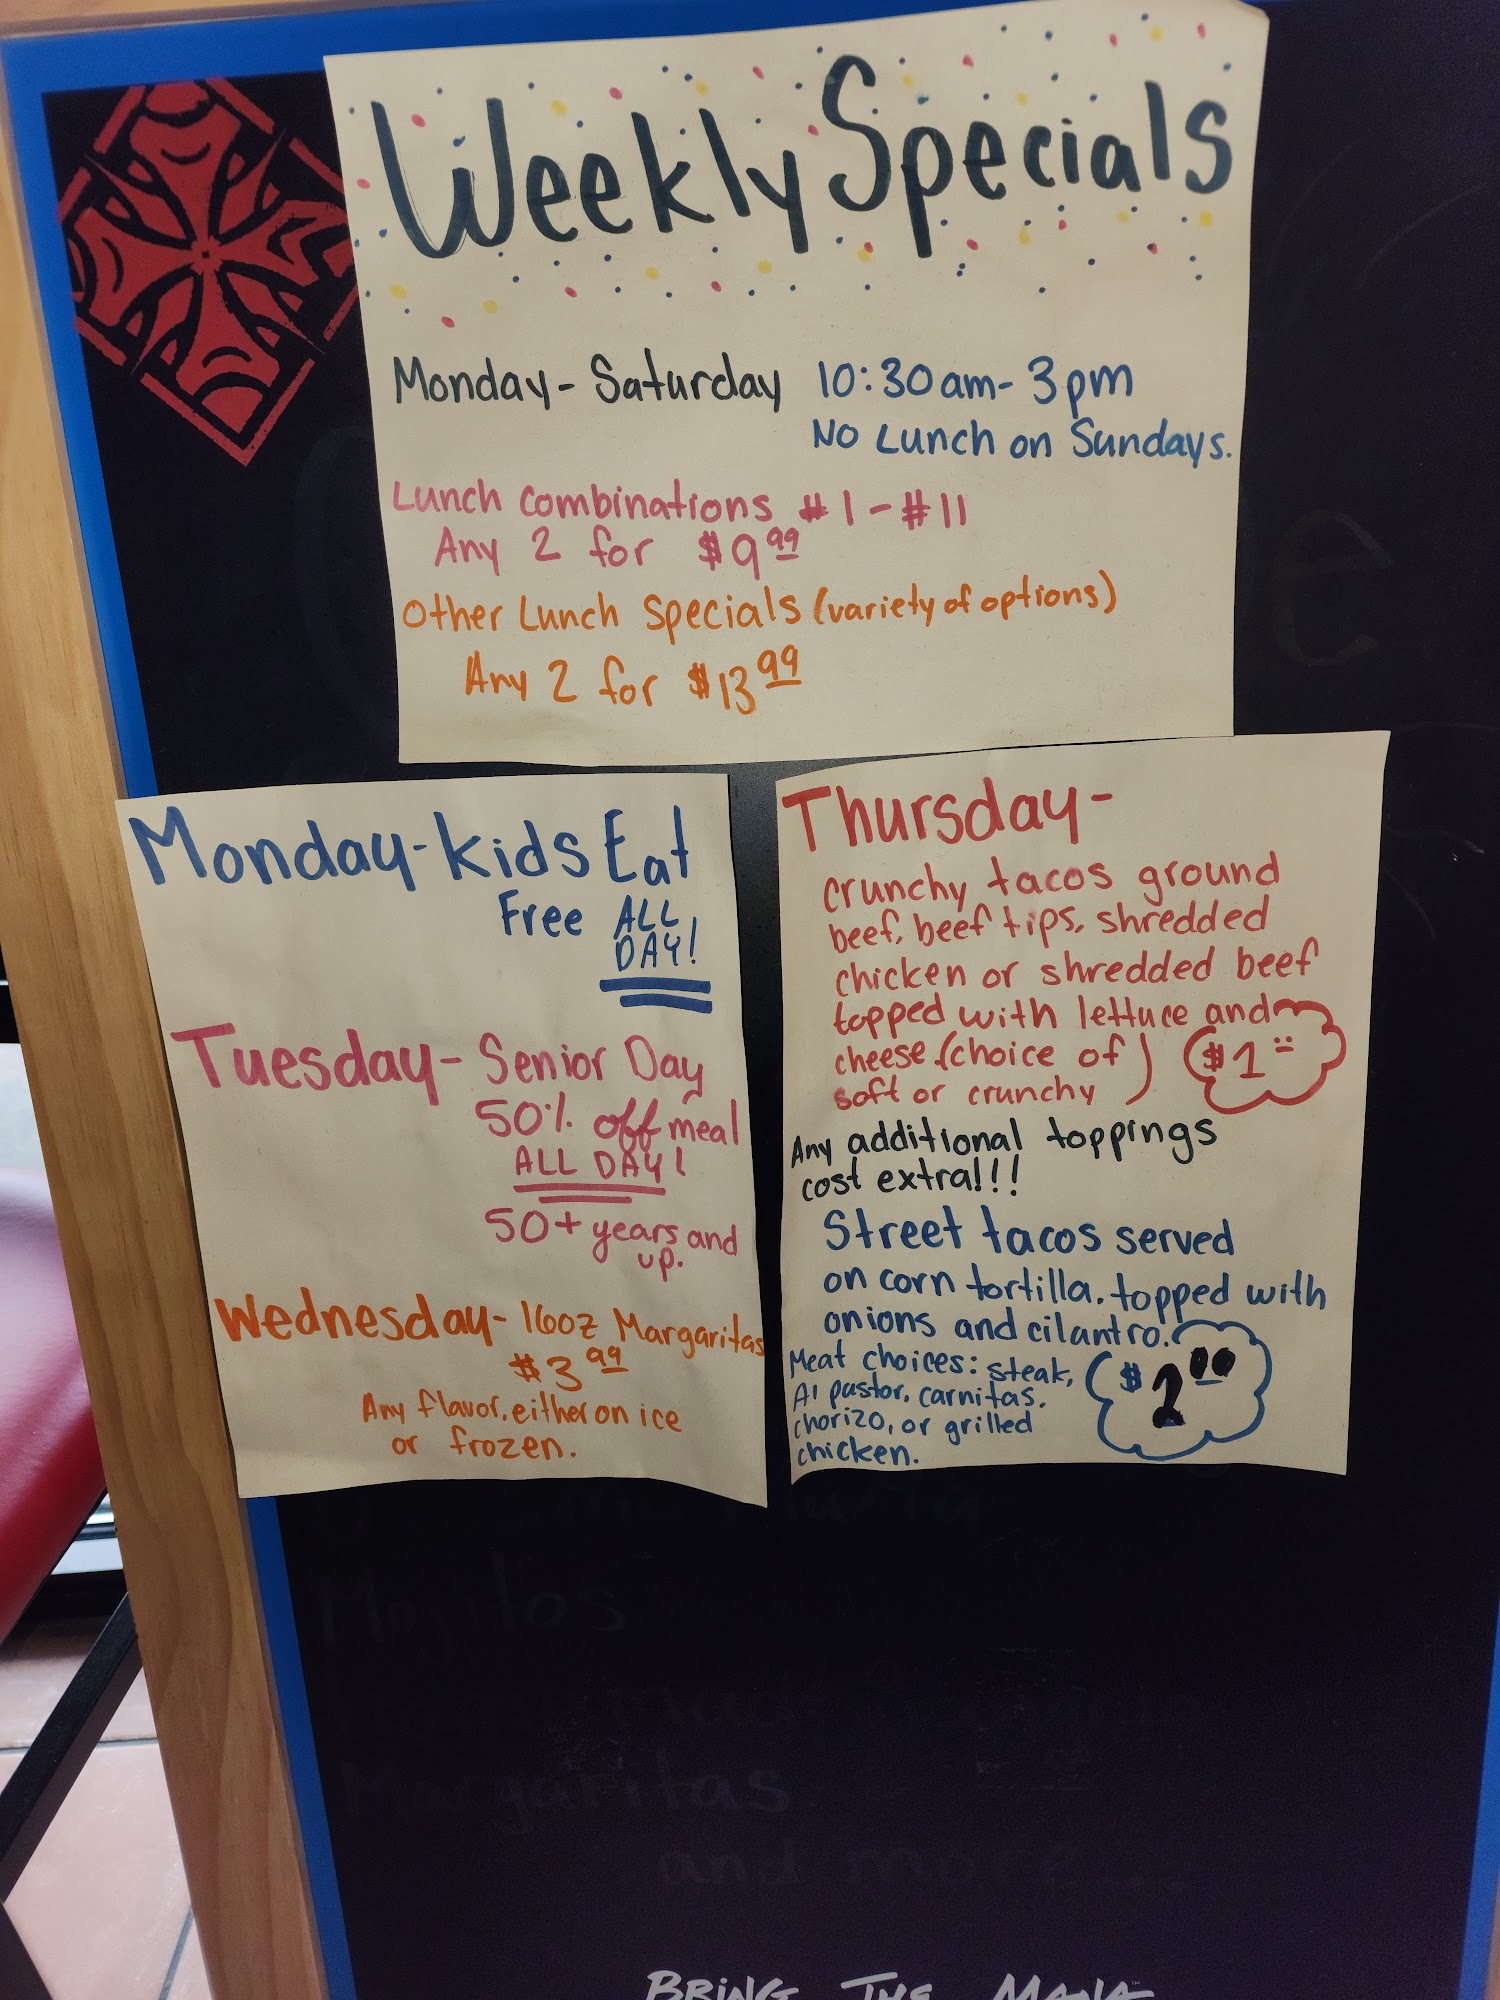 Weekly Specials
Monday - Saturday 10:30am - 3pm
No Lunch on Sundays.
Lunch combinations #1 - #11
Any 2 for $9.99
Other Lunch Specials (variety of options)
Any 2 for $13.99
Monday - kids Eat
Free ALL
DAY!
Tuesday - Senior Day
50% off meal
ALL DAY!
50+ years and
up.
Wednesday - 16oz Margaritas
$3.99
Any flavor, either on ice
or frozen.
Thursday -
crunchy tacos ground
beef, beef tips, shredded
chicken or shredded beef
topped with lettuce and
cheese. (choice of
soft or crunchy)
$1
Any additional toppings
cost extra!!!
Street tacos served
on corn tortilla. topped with
onions and cilantro.
Meat choices: steak,
Al pastor, carnitas,
chorizo, or grilled
chicken.
$2.00
Mojitos
Margaritas
and more
BRING THE MANA